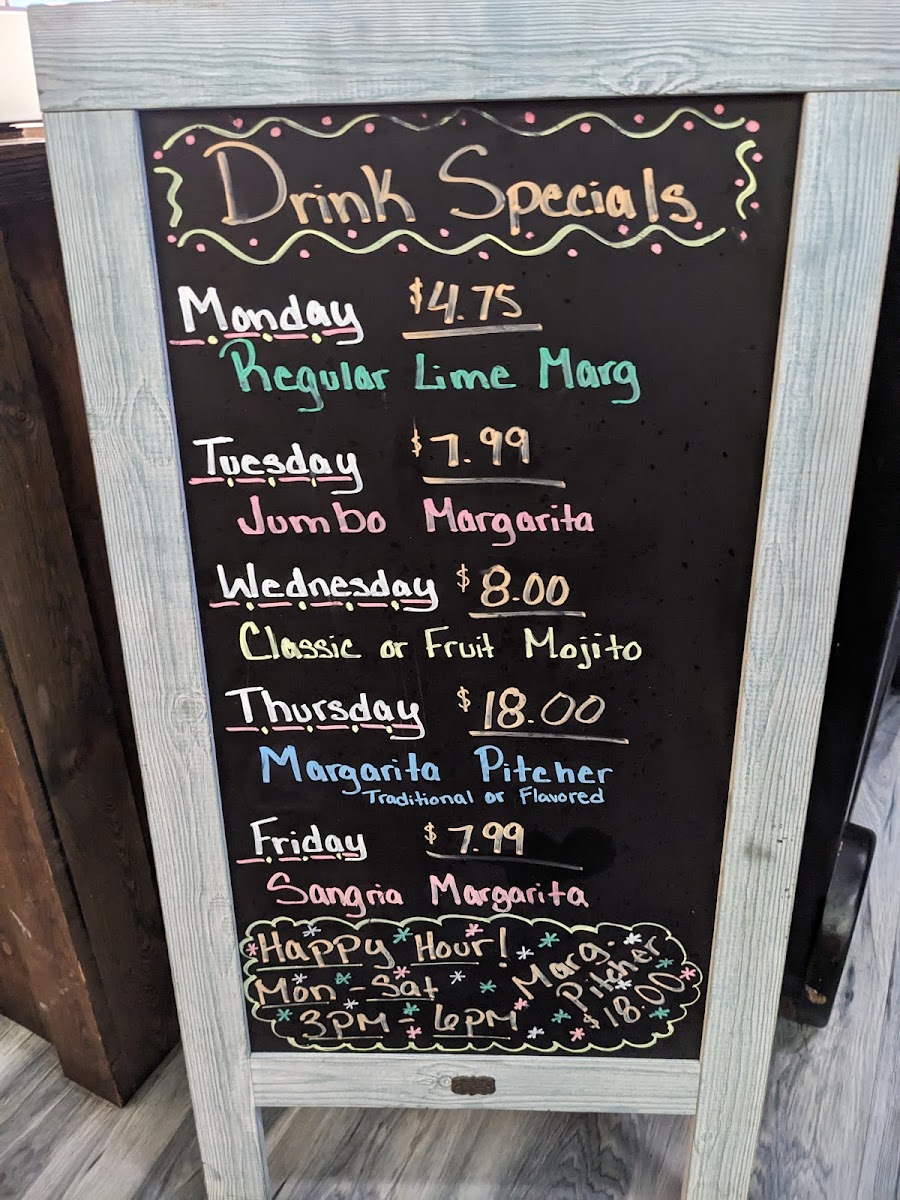 Drink Specials
Monday $4.75
Regular Lime Marg
Tuesday $7.99
Jumbo Margarita
Wednesday $8.00
Classic or Fruit Mojito
Thursday $18.00
Margarita Pitcher
Traditional or Flavored
Friday $7.99
Sangria Margarita
Happy Hour!
Mon - Sat
3PM - 6PM
Marg.
Pitcher
$18.00